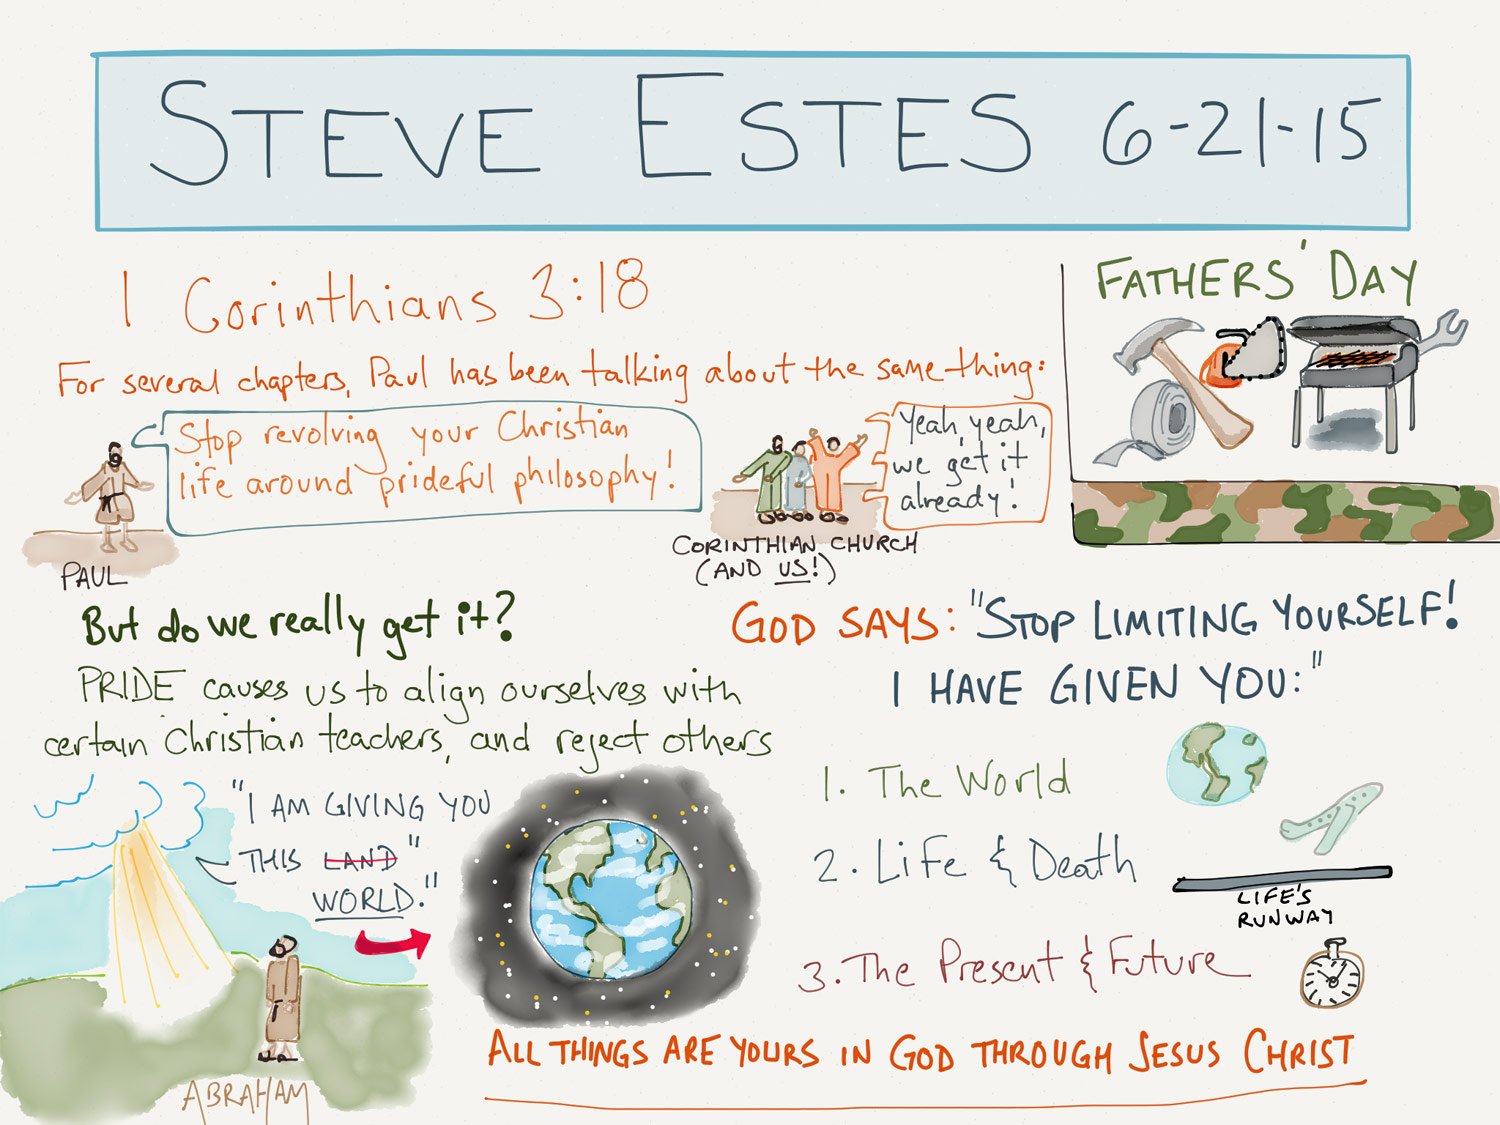 STEVE ESTES 6-21-15
1 Corinthians 3:18
FATHERS' DAY
For several chapters, Paul has been talking about the same thing:
Stop revolving your Christian
life around prideful philosophy!
PAUL
Yeah, yeah,
we get it
already!
CORINTHIAN CHURCH
(AND US!)
But do we really get it?
PRIDE causes us to align ourselves with
certain Christian teachers, and reject others
"I AM GIVING YOU
THIS LAND"
WORLD."
ABRAHAM
GOD SAYS: "STOP LIMITING YOURSELF!
I HAVE GIVEN YOU:"
1. The World
2. Life & Death
LIFE'S
RUNWAY
3. The Present & Future
ALL THINGS ARE YOURS IN GOD THROUGH JESUS CHRIST